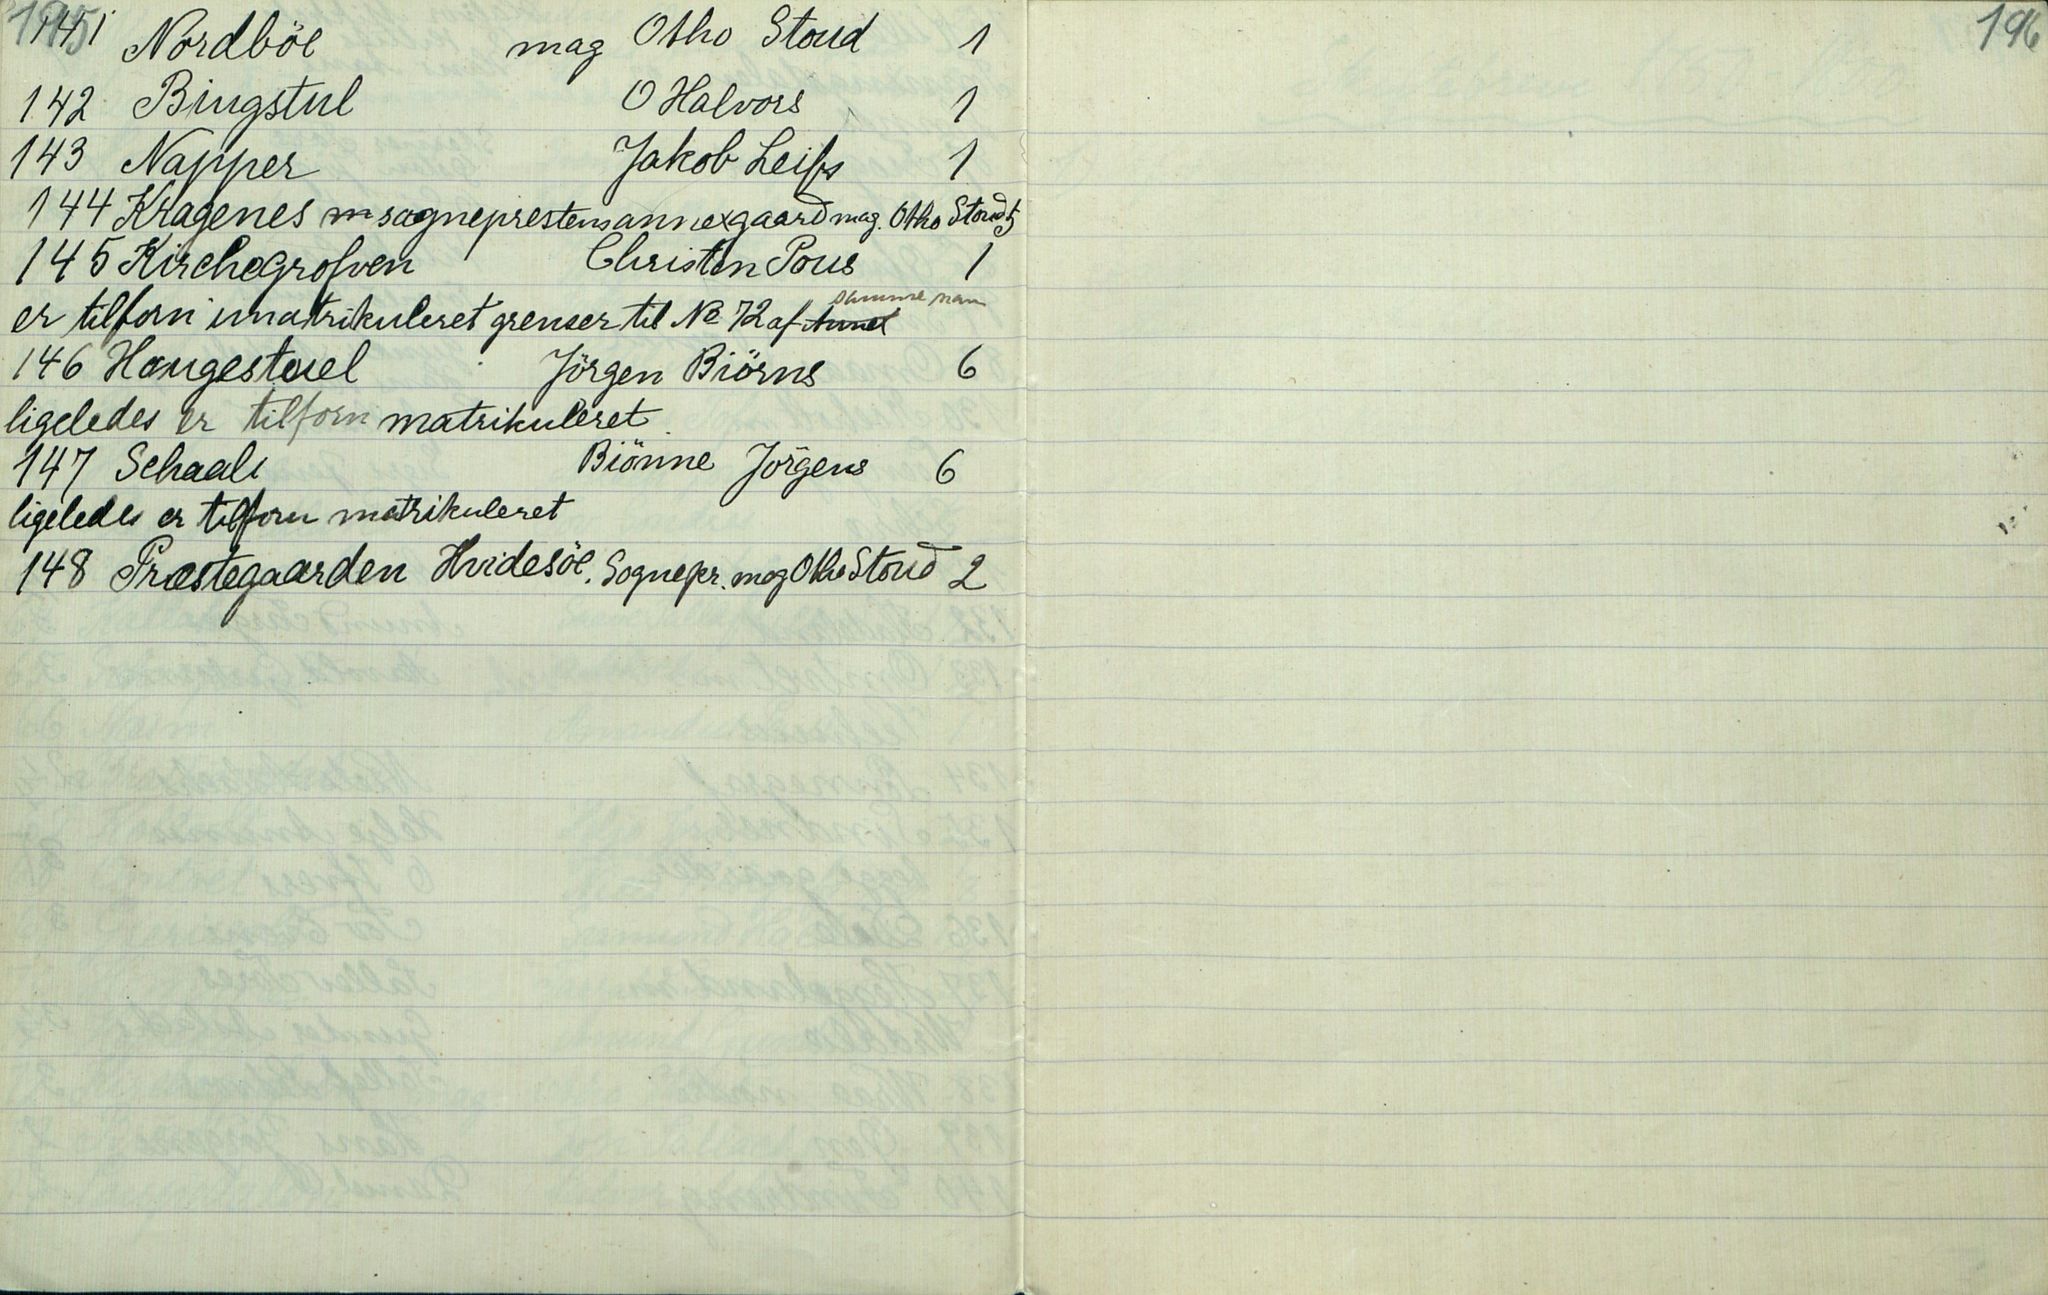 195 196
141 Nordböe mag Otho Stoud 1
142 Bingstul O Halvors 1
143 Napper Jakob Leifs 1
144 Kragenes m sogneprestens annexgaard mag. Otho Stoud 5
145 Kirchegrofven Christen Pous 1
samme nam
er tilforn umatrikuleret grenser til No 72 af
146 Haugestuel Jörgen Biörns 6
ligeledes er tilforn matrikuleret
147 Schaali Biönne Jörgens 6
ligeledes er tilforn matrikuleret
148 Præstegaarden Hvidesöe. Sognepr. mag Otho Stoud 2